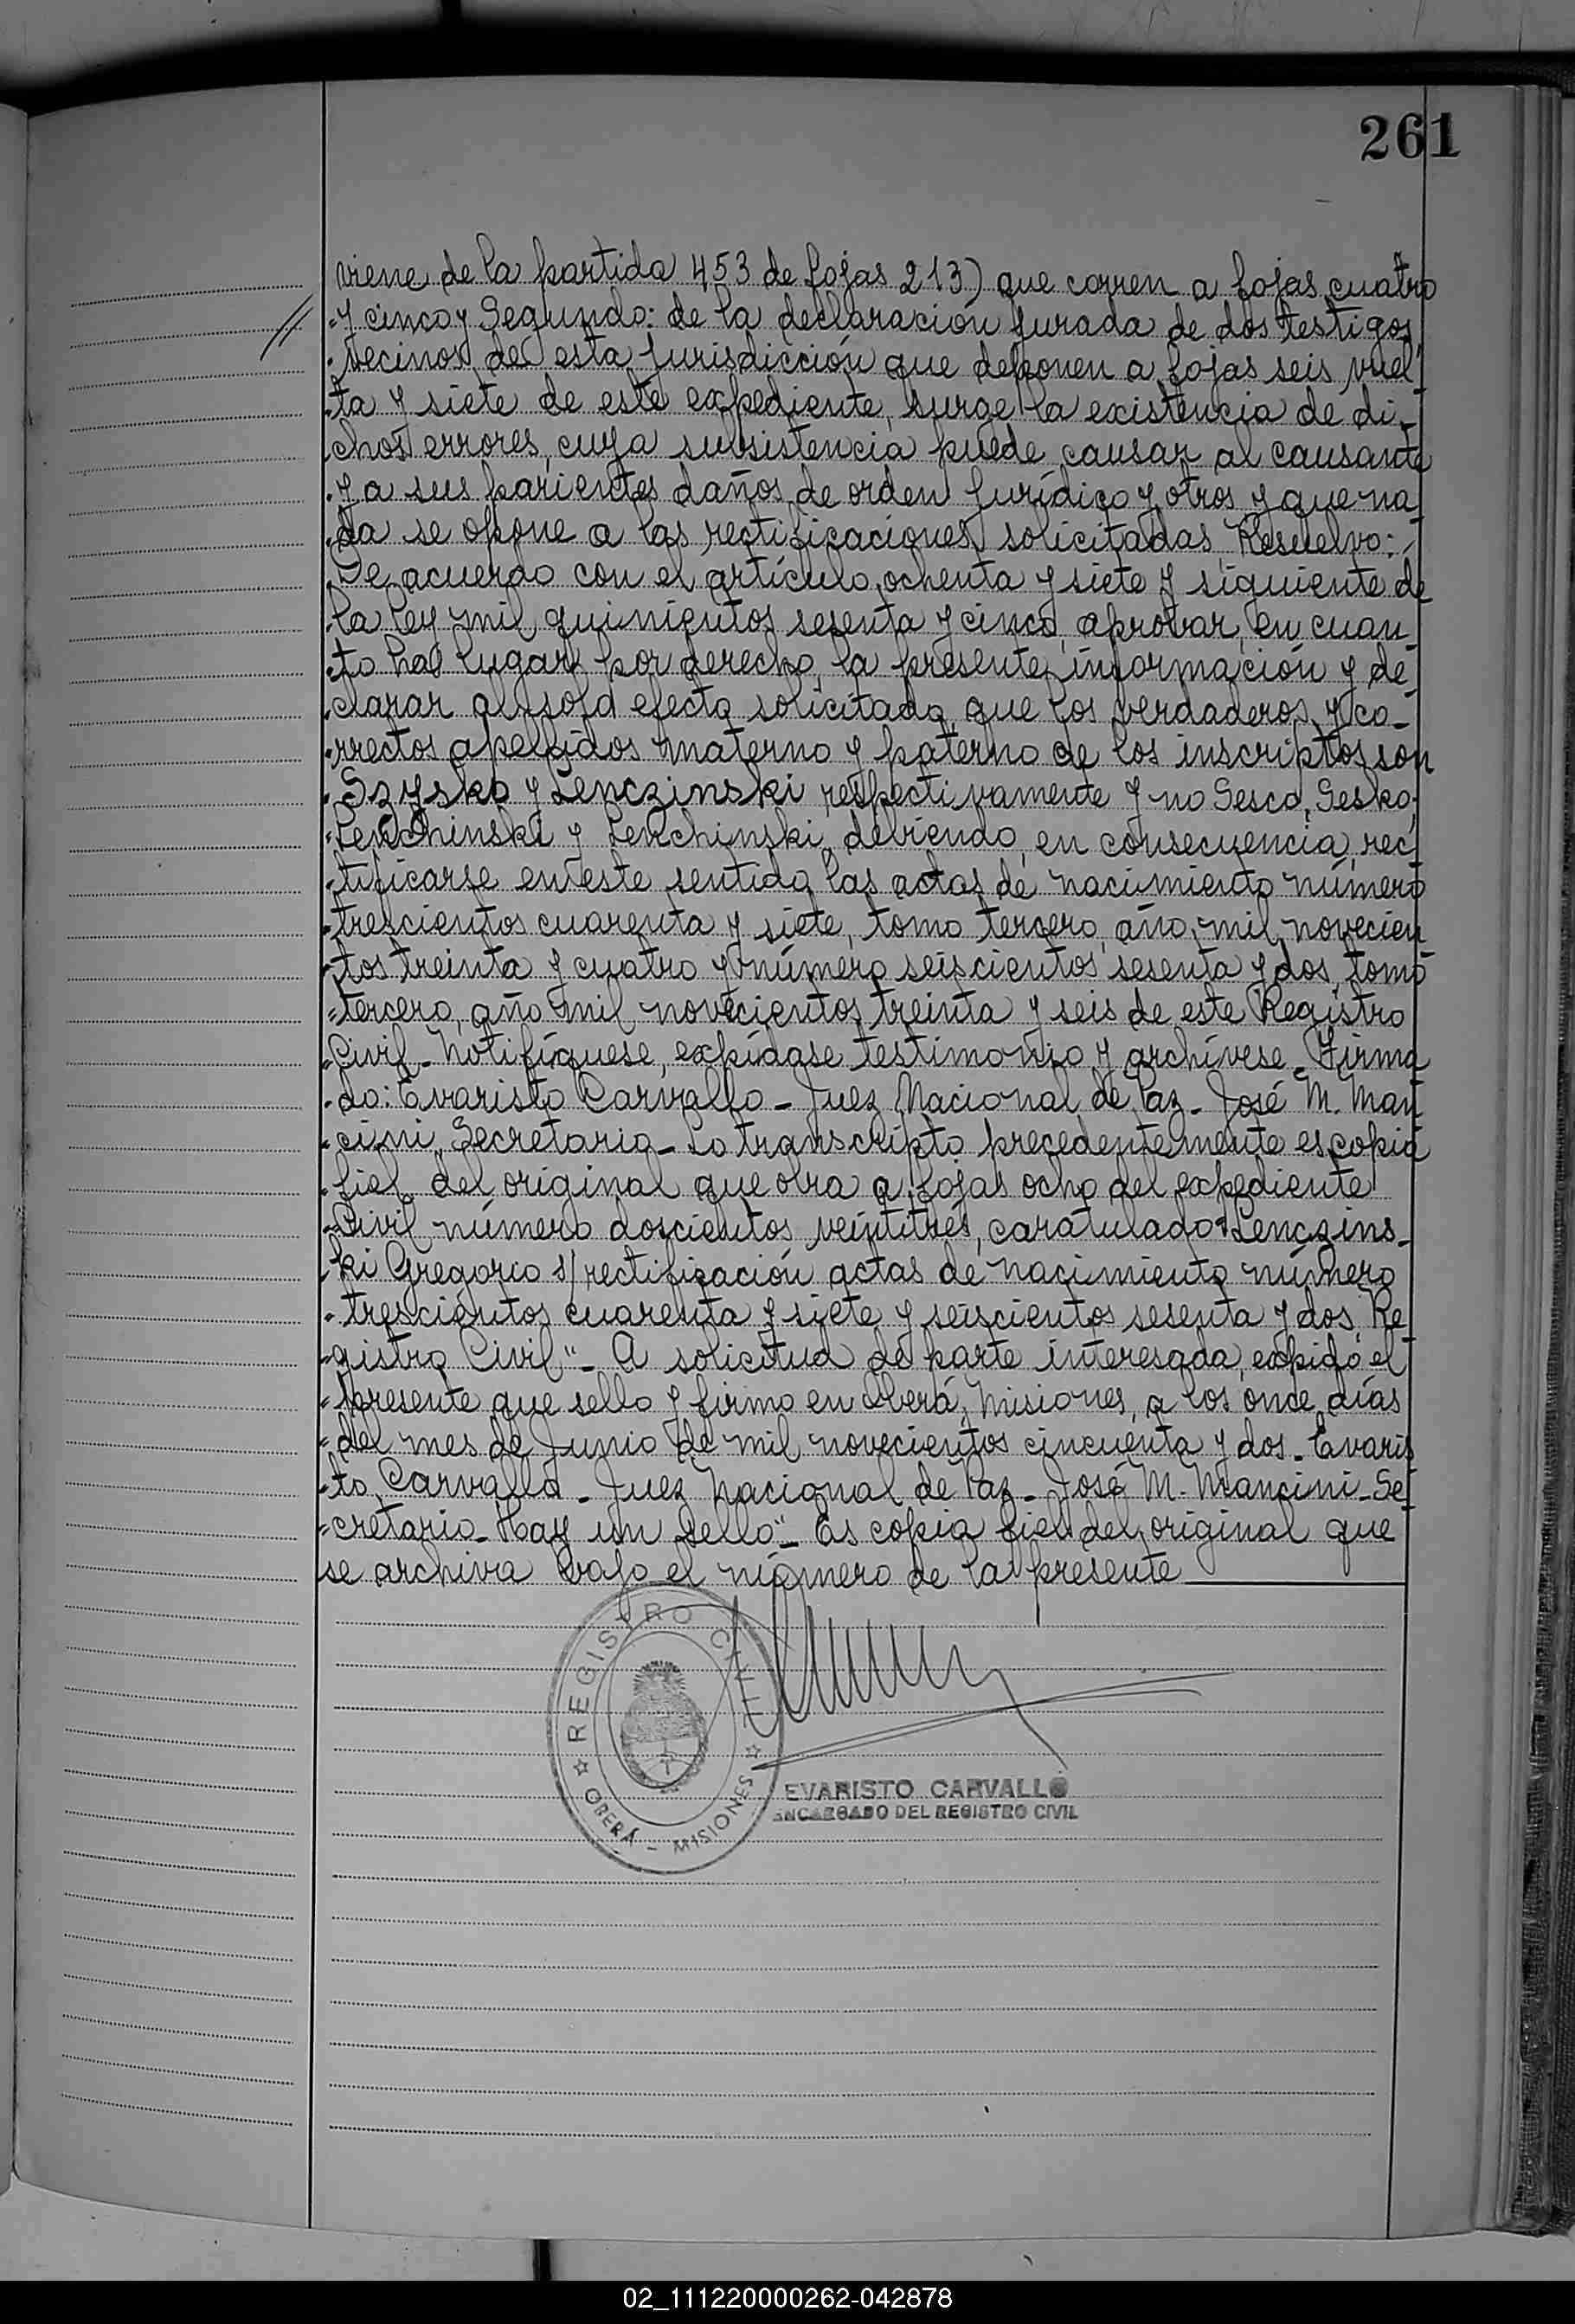 261
viene de la partida 453 de fojas 213) que corren a fojas cuatro
y cinco y Segundo: de la declaracion jurada de dos testigos,
vecinos de esta jurisdicción que deponen a fojas seis vuel
ta y siete de este expediente, surge la existencia de di-
chos errores, cuya subsistencia puede causar al causante
y a sus parientes daños de orden jurídico y otros y que na
da se opone a las rectificaciones solicitadas, Resuelvo:
De acuerdo con el artículo ochenta y siete y siguiente de
la ley mil quinientos sesenta y cinco, aprovar, en cuan
to ha lugar por derecho, la presente información y de
clarar al solo efecto solicitado, que los verdaderos y co-
rrectos apellidos materno y paterno de los inscriptos son
Szysko y Lenczinski respectivamente y no Sesco, Sesko,
Lenchinski y Lenchinski, debiendo, en consecuencia, rec
tificarse en este sentido las actas de nacimiento número
trescientos cuarenta y siete, tomo tercero, año mil novecien
tos treinta y cuatro y número seiscientos sesenta y dos, tomo
tercero, año mil novecientos treinta y seis de este Registro
Civil - Notifíquese, expídase testimonio y archívese - Firma
do: Evaristo Carvallo - Juez Nacional de Paz - José M. Man
cini, Secretario - Lo transcripto precedentemente es copia
fiel del original que obra a fojas ocho del expediente
Civil número doscientos veintitrés, caratulado "Lenczins-
ki Gregorio s/ rectificación actas de nacimiento número
trescientos cuarenta y siete y seiscientos sesenta y dos, Re
gistro Civil" - A solicitud de parte interesada, expido el
presente que sello y firmo en Oberá, Misiones, a los once días
del mes de Junio de mil novecientos cincuenta y dos - Evaris
to Carvallo - Juez Nacional de Paz - José M. Mancini - Se
cretario - Hay un sello" - Es copia fiel del original que
se archiva bajo el número de la presente
REGISTRO CIVIL
OBERÁ - MISIONES
EVARISTO CARVALLO
ENCARGADO DEL REGISTRO CIVIL
02_111220000262-042878